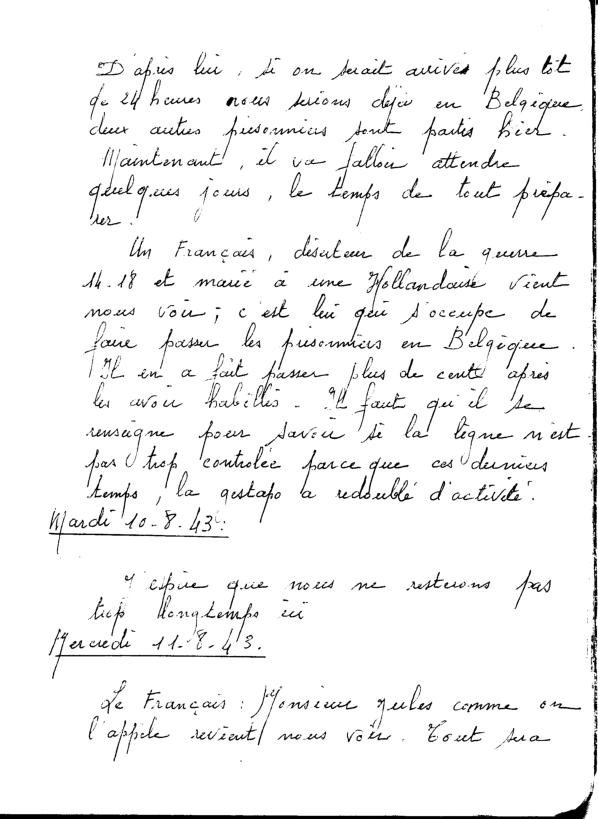 D'après lui, si on serait arrivés plus tôt
de 24 heures nous serions déjà en Belgique,
deux autres prisonniers sont partis hier.
Maintenant, il va falloir attendre
quelques jours, le temps de tout prépa-
rer.
Un Français, déserteur de la guerre
14-18 et marié à une Hollandaise vient
nous voir; c'est lui qui s'occupe de
faire passer les prisonniers en Belgique.
Il en a fait passer plus de cent après
les avoir habillés. Il faut qu'il se
renseigne pour savoir si la ligne n'est
pas trop controlée parce que ces derniers
temps, la gestapo a redoublé d'activité.
Mardi 10-8-43:
J'espire que nous ne resterons pas
trop longtemps ici
Mercredi 11-8-43.
Le Français: Monsieur Jules comme on
l'appele revient nous voir. Tout sera